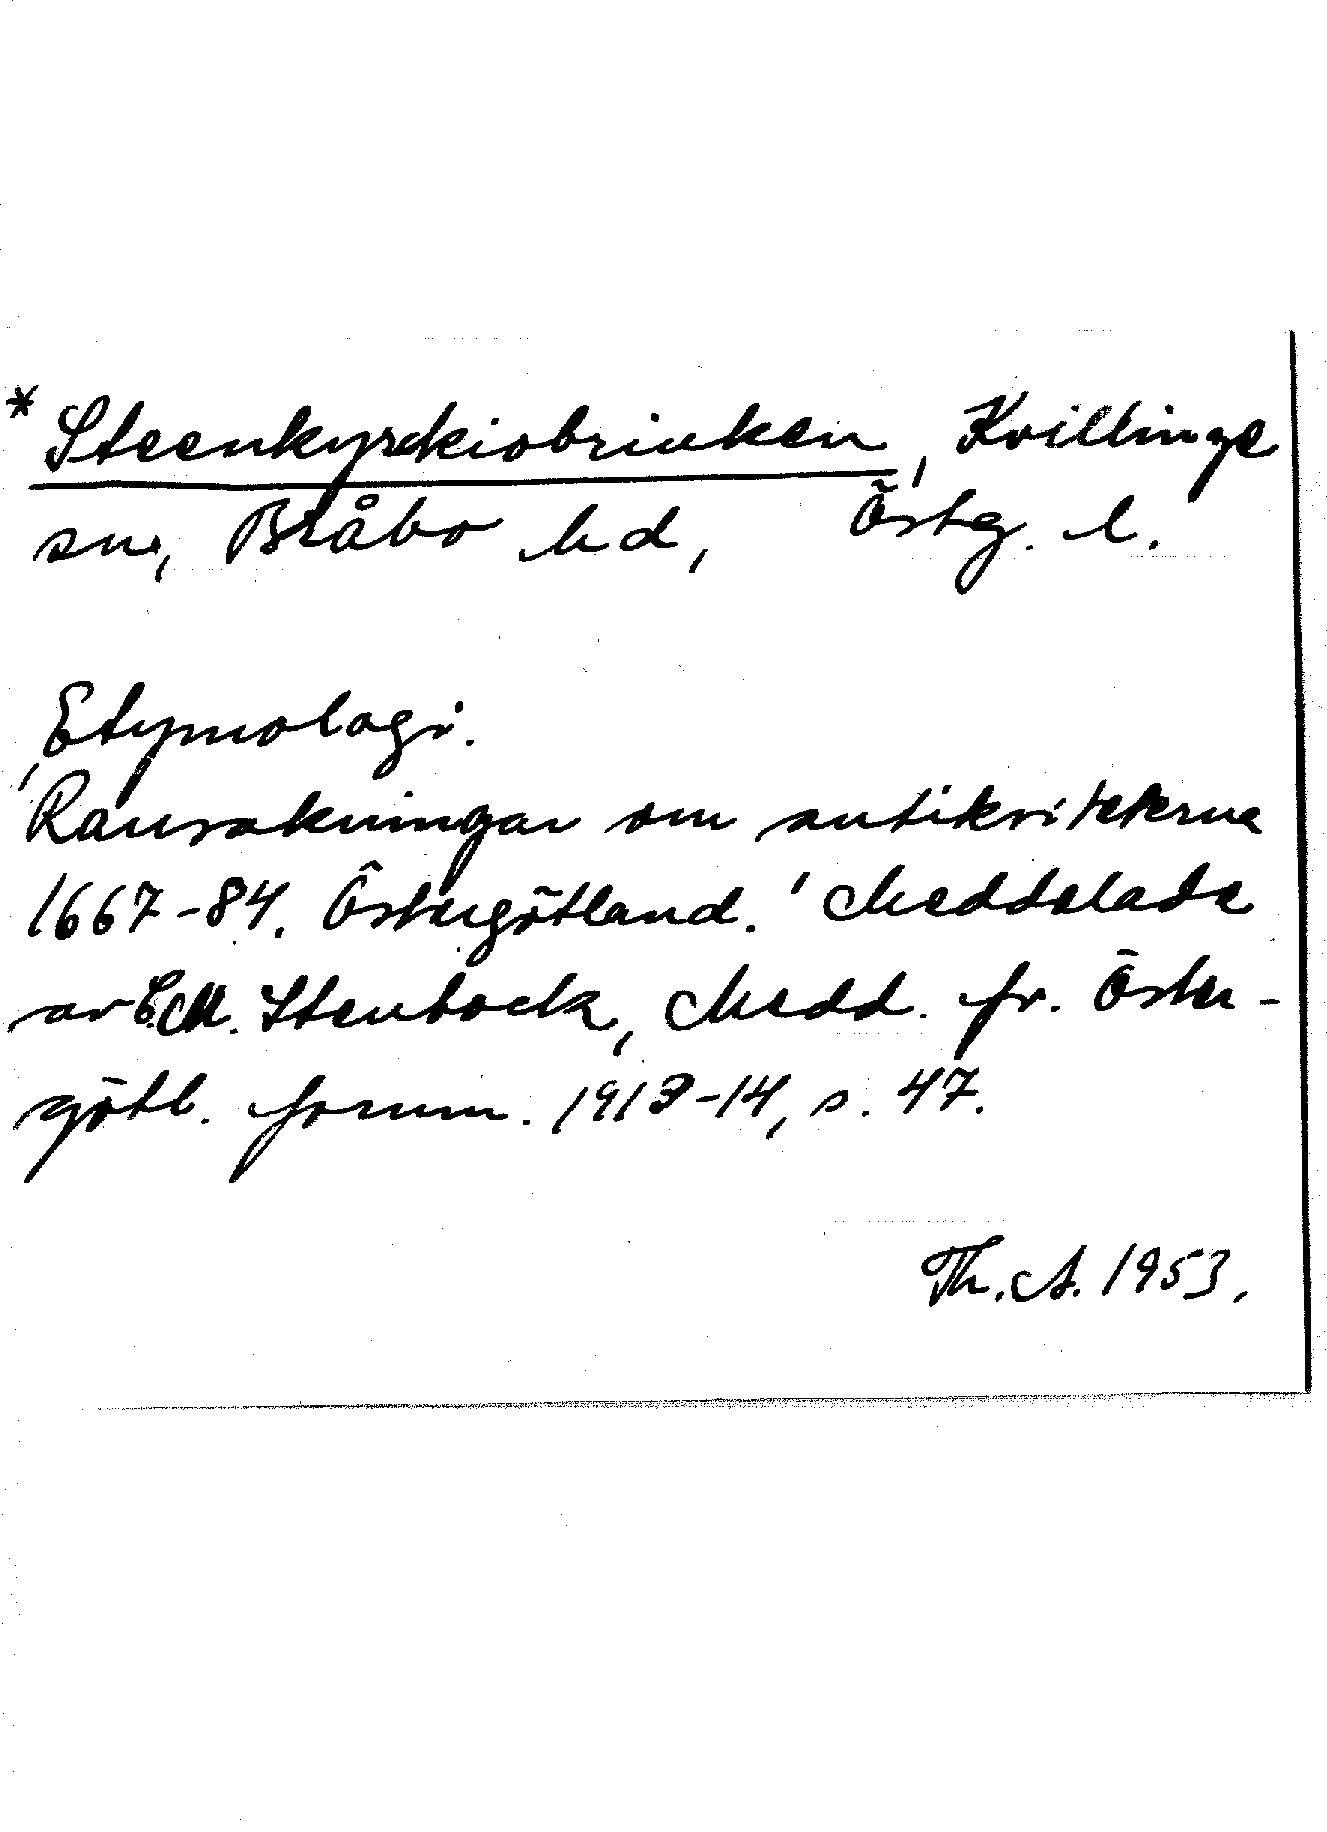 * Steenkyrckiobrinken, Kvillinge
sn, Bråbo hd, Östg. l.
Etymologi.
'Ransakningar om antikviteterna
1667-84. Östergötland.' Meddelade
av C.M. Stenbock, Medd. fr. Öster-
götl. fornm. 1913-14, s. 47.
Th. A. 1953.